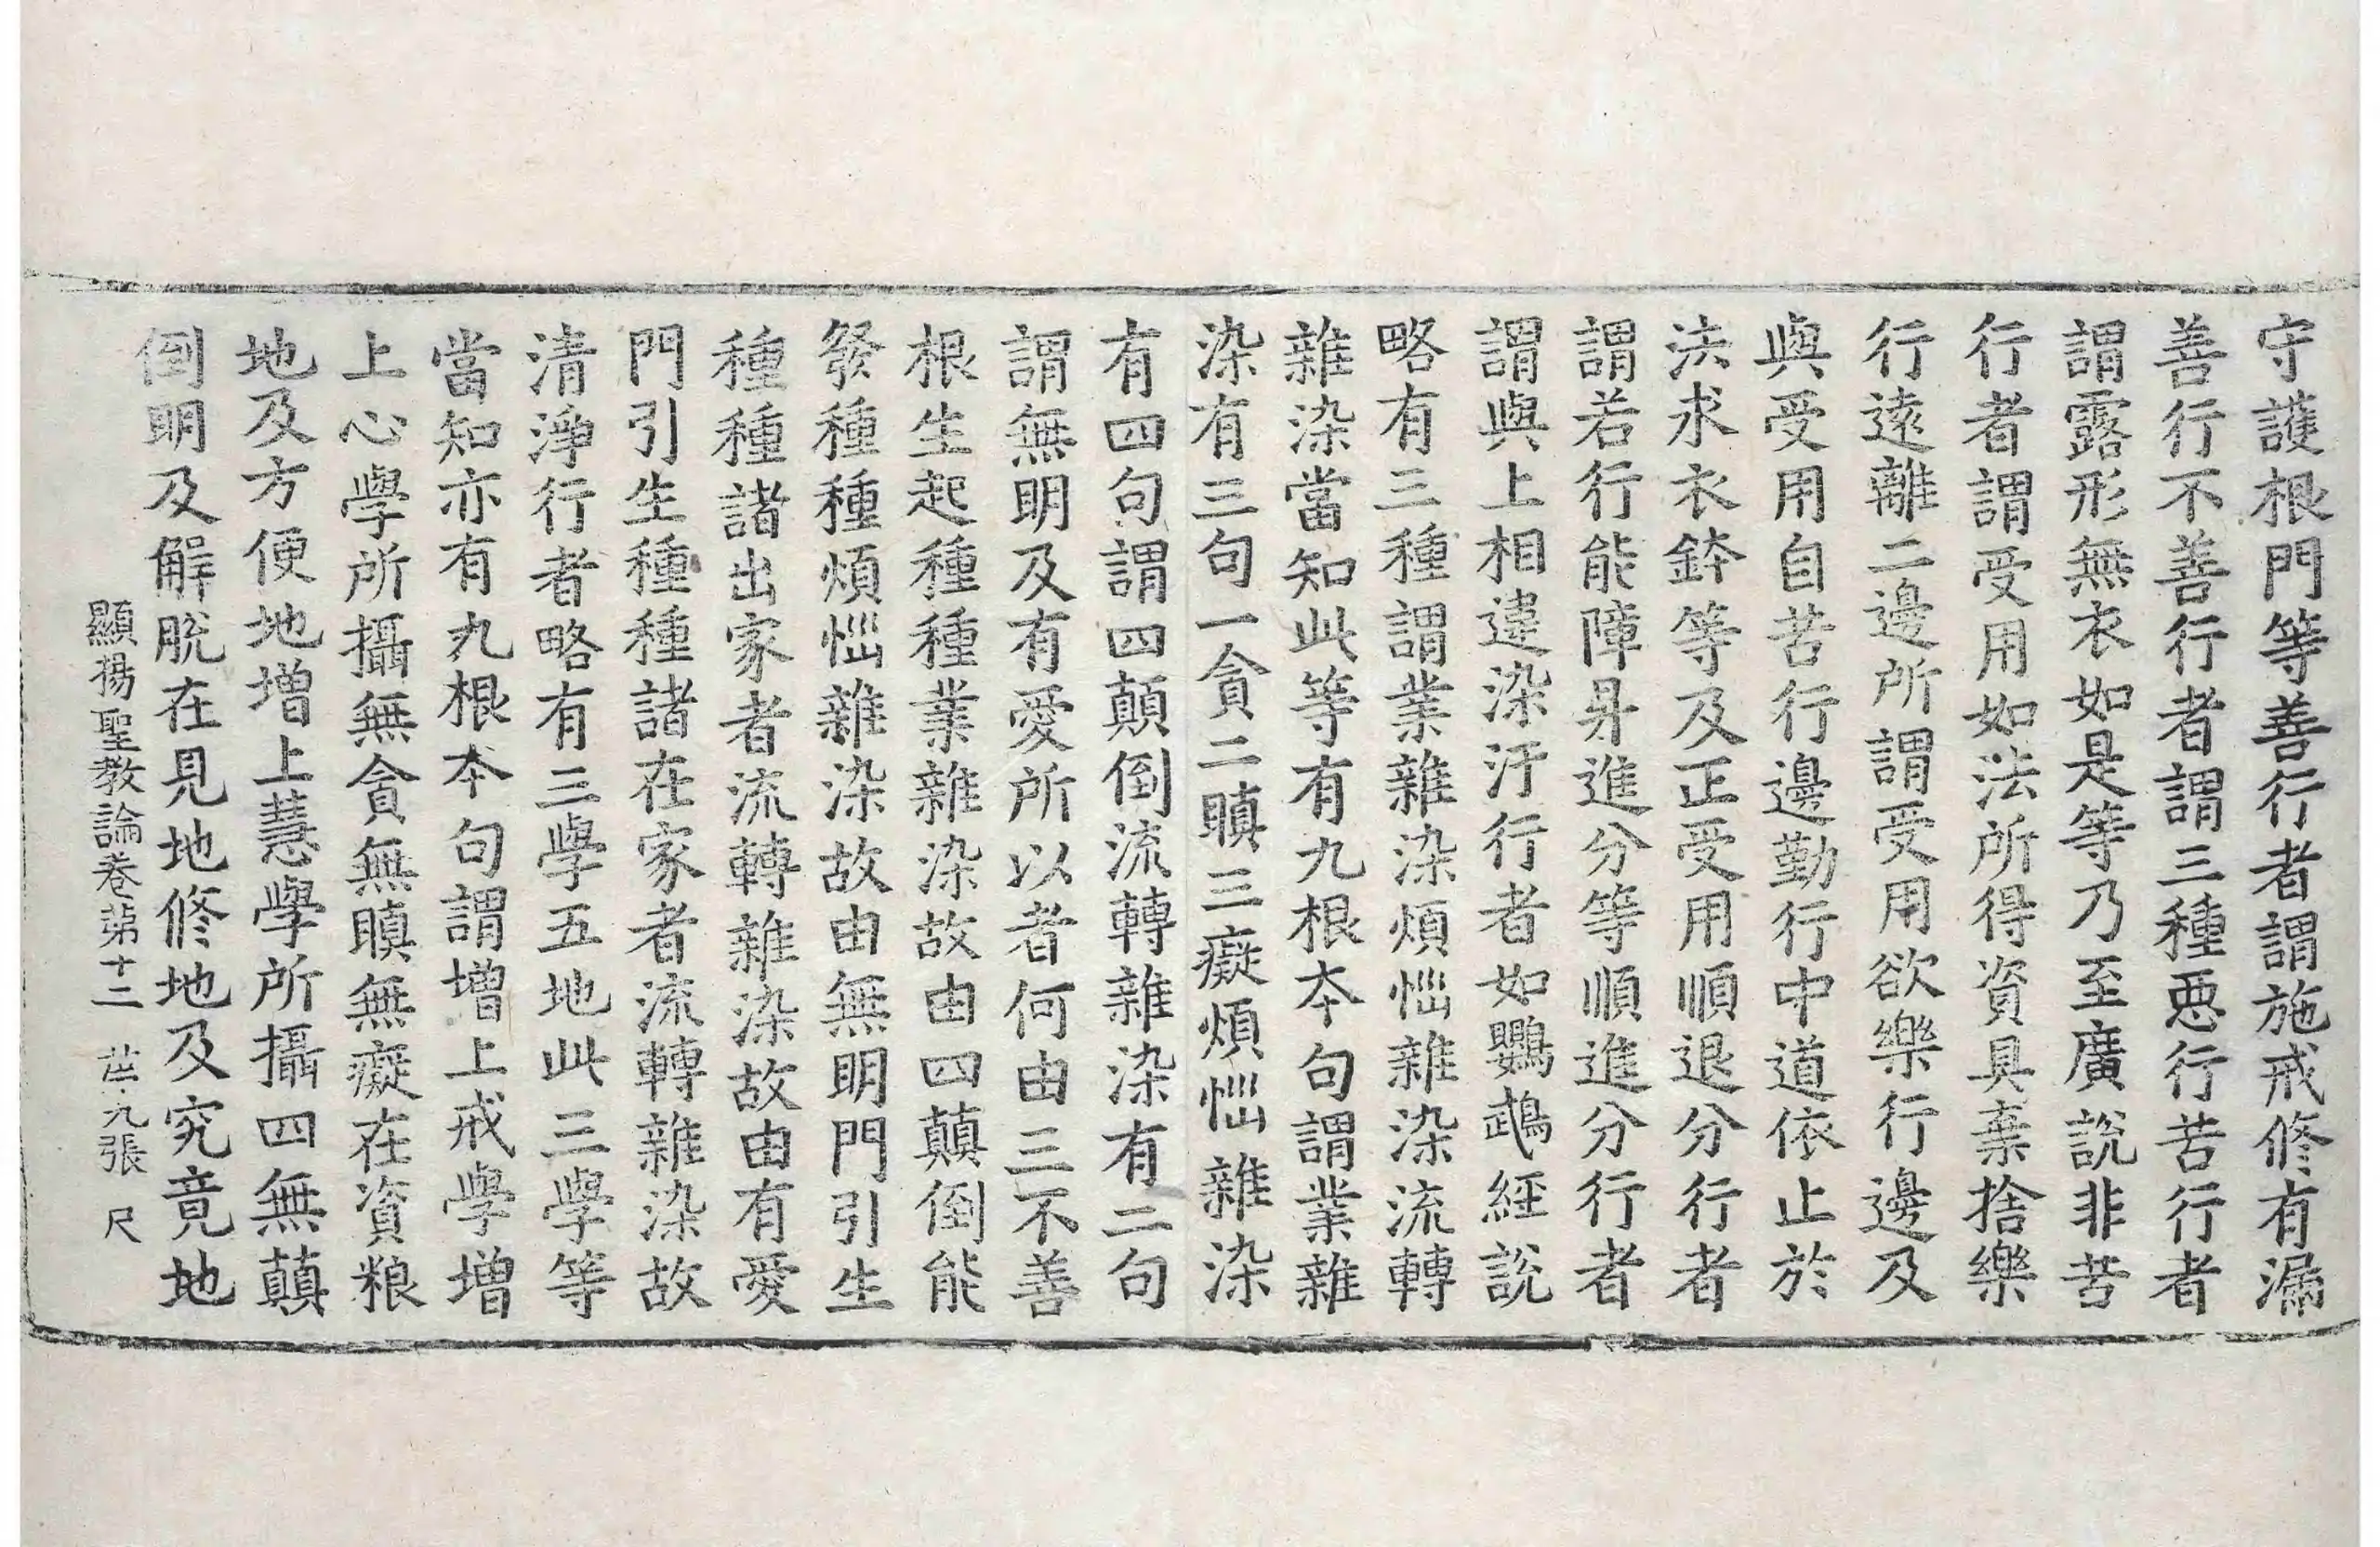 守護根門等善行者謂施戒修有漏
善行不善行者謂三種惡行苦行者
謂露形無衣如是等乃至廣說非苦
行者謂受用如法所得資具棄捨樂
行遠離二邊所謂受用欲樂行邊及
與受用自苦行邊勤行中道依止於
法求衣鉢等及正受用順退分行者
謂若行能障昇進分等順進分行者
謂與上相違染汙行者如鸚鵡經說
略有三種謂業雜染煩惱雜染流轉
雜染當知此等有九根本句謂業雜
染有三句一貪二瞋三癡煩惱雜染
有四句謂四顛倒流轉雜染有二句
謂無明及有愛所以者何由三不善
根生起種種業雜染故由四顛倒能
發種種煩惱雜染故由無明門引生
種種諸出家者流轉雜染故由有愛
門引生種種諸在家者流轉雜染故
清淨行者略有三學五地此三學等
當知亦有九根本句謂增上戒學增
上心學所攝無貪無瞋無癡在資粮
地及方便地增上慧學所攝四無顛
倒明及解脫在見地修地及究竟地
顯揚聖教論卷第十二 九張 尺